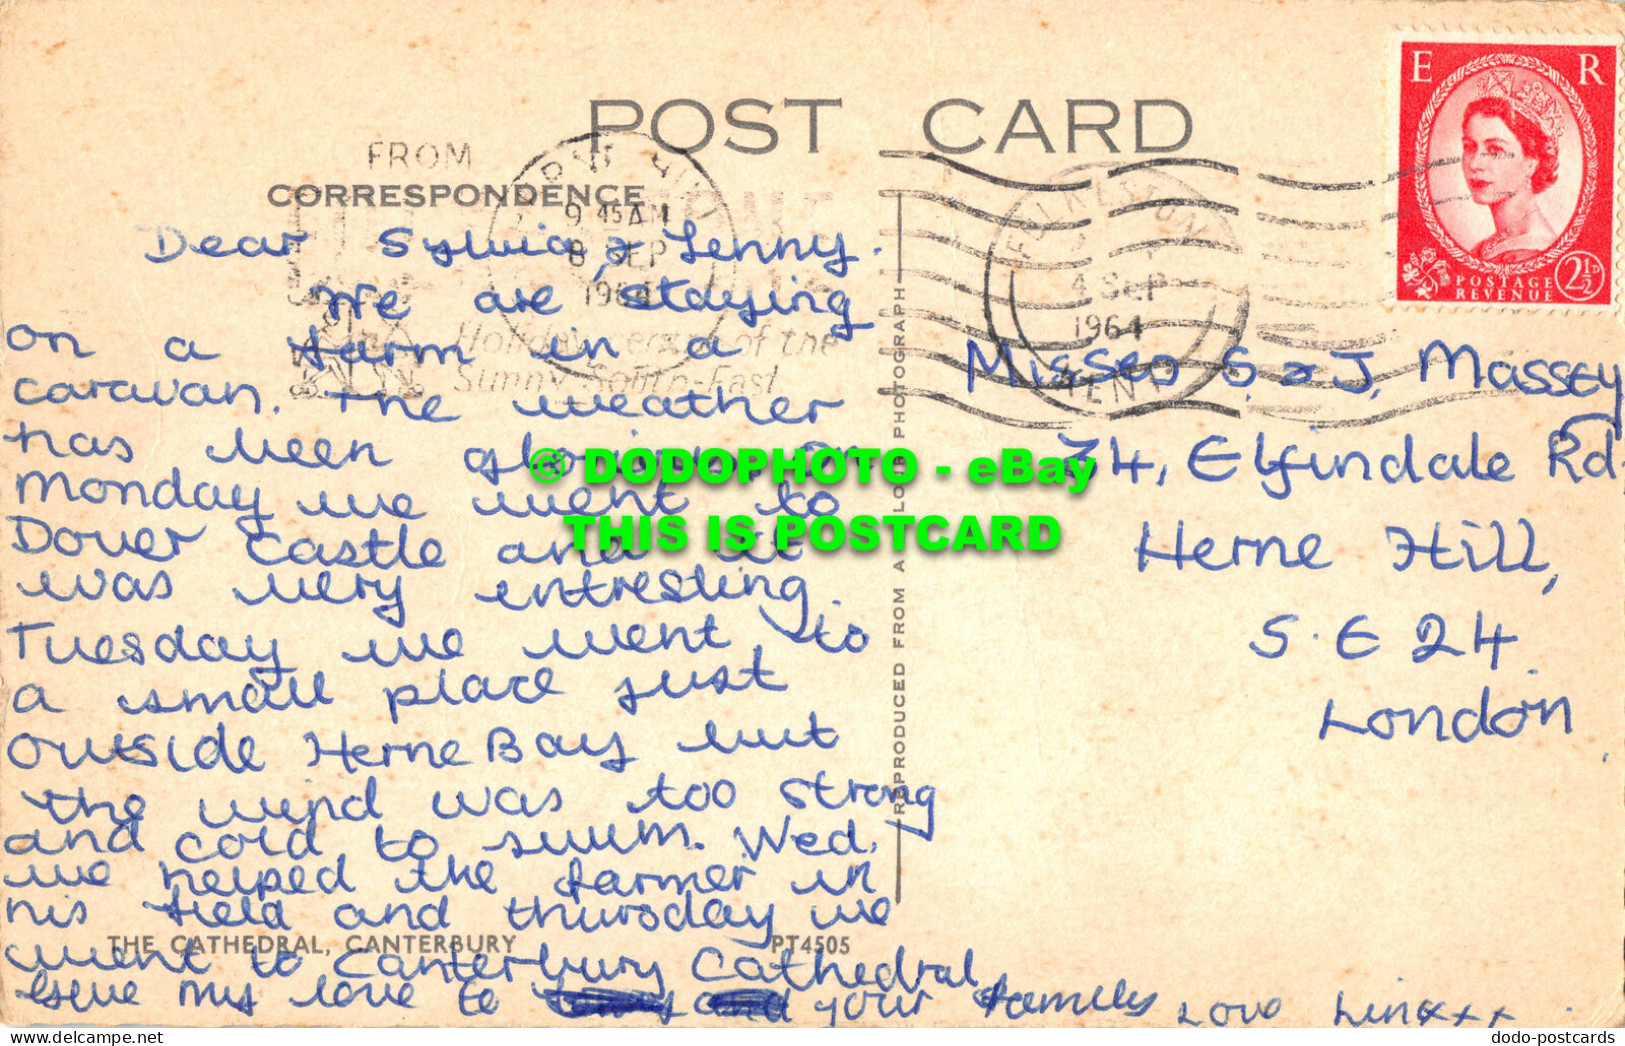 POST CARD
FROM
CORRESPONDENCE
9 45 AM
8 SEP
1964
Holiday centre of the
Sunny South-East
FOLKESTONE
4 SEP
1964
KENT
E R
POSTAGE
REVENUE
2½D
Dear Sylvia, & Jenny.
We are staying
on a farm in a
caravan. The weather
has been glorious. On
Monday we went to
Dover castle and it
was very entresting.
Tuesday we went to
a small place just
outside Herne Bay but
the wind was too strong
and cold to swim. Wed.
we helped the farmer in
his field and thursday we
went to Canterbury Cathedral
Give my love to your family Love Linxxx
THE CATHEDRAL, CANTERBURY PT4505
REPRODUCED FROM A COLOUR PHOTOGRAPH
Misses S & J, Massey
34, Elfindale Rd.
Herne Hill,
S.E 24.
London.
© DODOPHOTO - eBay
THIS IS POSTCARD
dodo-postcards